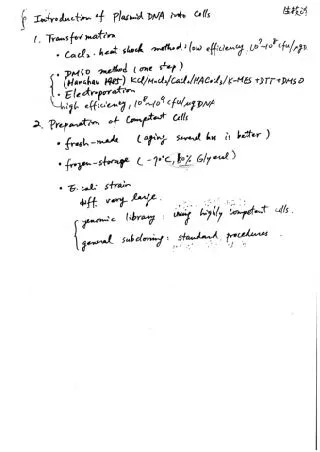 § Introduction of Plasmid DNA into Cells
1. Transformation
• CaCl₂ - heat shock method : low efficiency 10⁷~10⁸ cfu/μgD
• DMSO method (one step)
(Hanahan 1985) KCl/MnCl₂/CaCl₂/HACoCl₃/K-MES +DTT+DMSO
• Electroporation
high efficiency, 10⁸~10⁹ cfu/μgDNA
2. Preparation of Competent Cells
• fresh-made (aging several hrs is better)
• frozen-storage (-70°C, 10% Glycerol)
• E. coli strain
diff. very large.
genomic library : using highly competent cells.
general subcloning : standard procedures